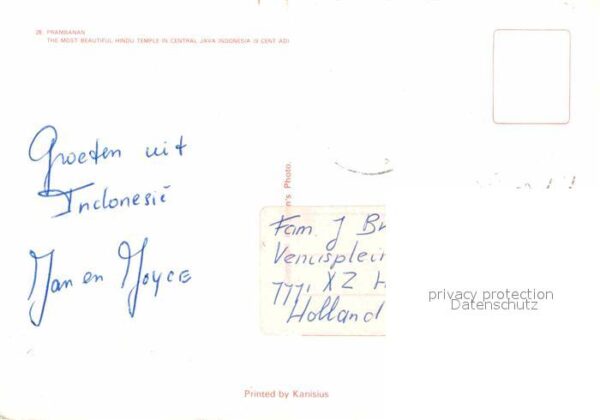 28 PRAMBANAN
THE MOST BEAUTIFUL HINDU TEMPLE IN CENTRAL JAVA INDONESIA (9 CENT AD)
Groeten uit
Indonesië
Jan en Joyce
n's Photo.
Fam. J Br
Venusplein
XZ H
Holland
privacy protection
Datenschutz
Printed by Kanisius